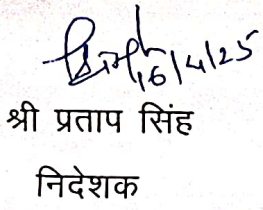 16/4/25
श्री प्रताप सिंह
निदेशक